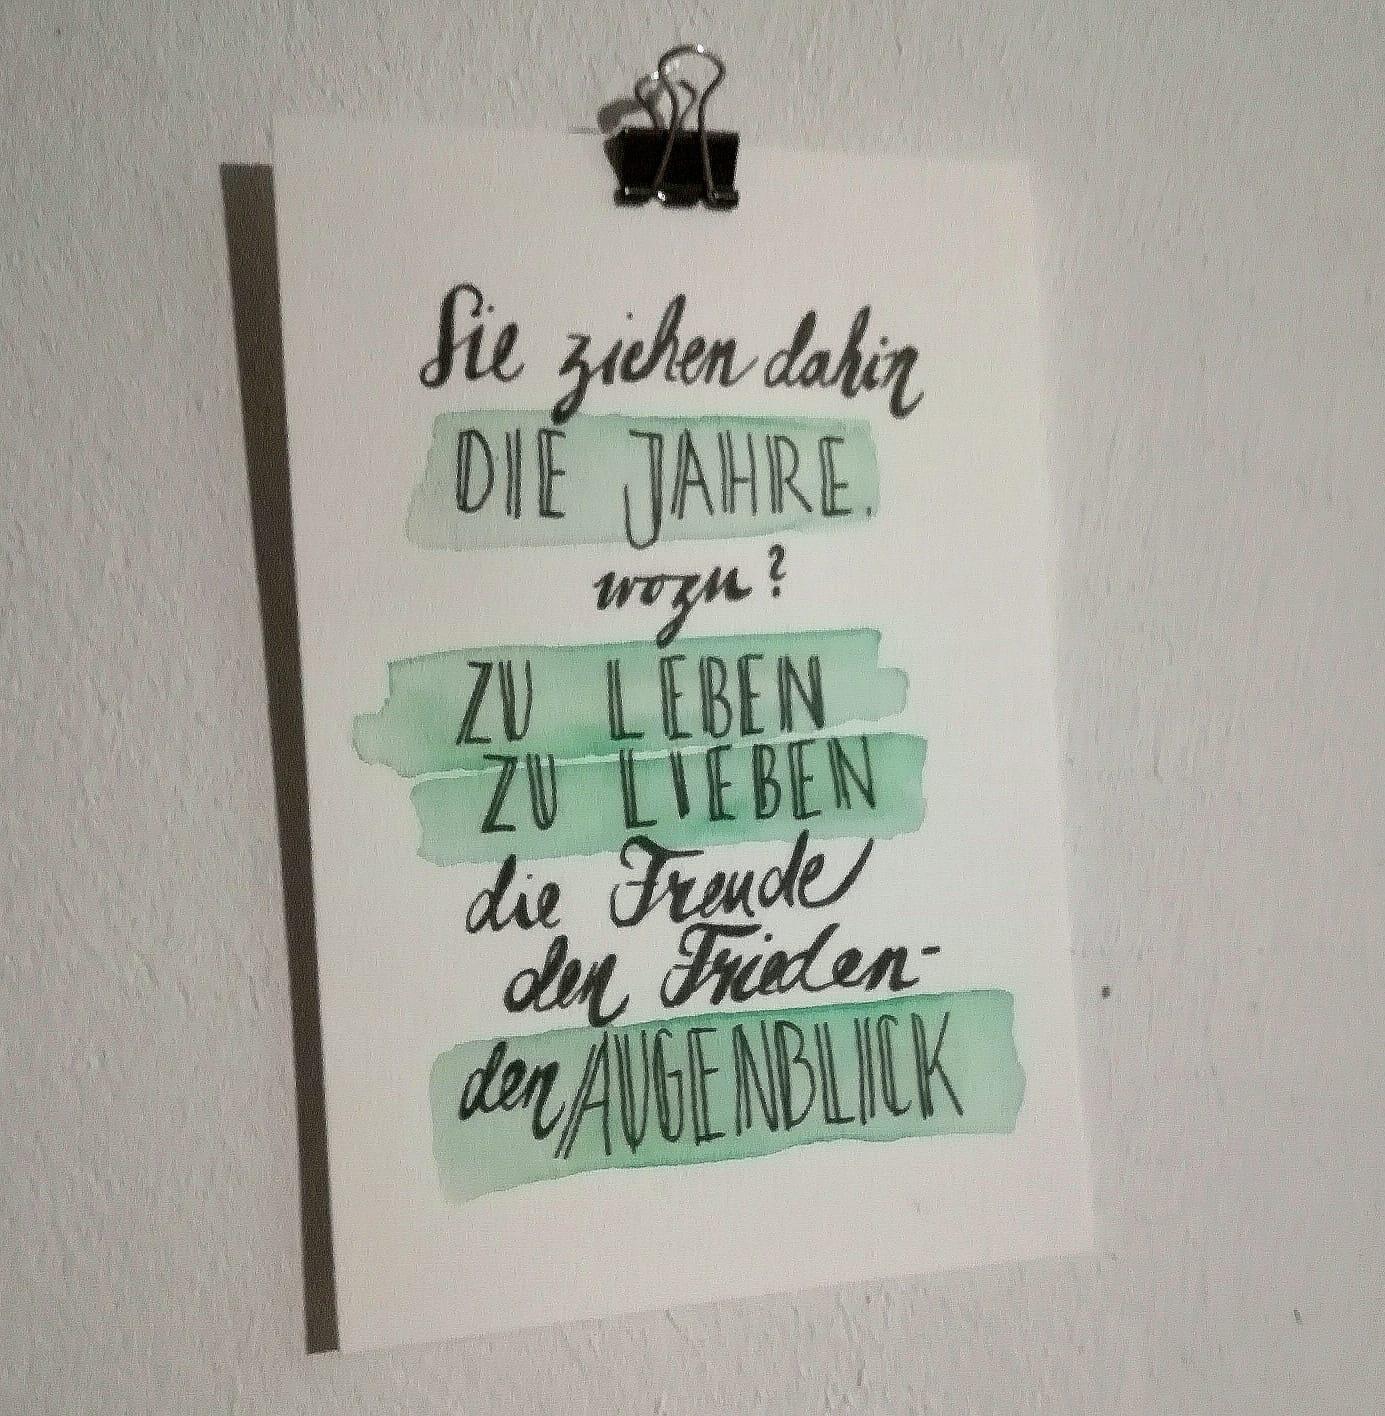 Sie ziehen dahin
DIE JAHRE.
wozu?
ZU LEBEN
ZU LIEBEN
die Freude
den Frieden-
den AUGENBLICK